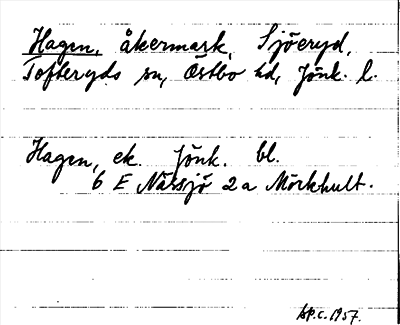 Hagen, åkermark, Sjöeryd,
Tofteryds sn, Östbo hd, Jönk. l.
Hagen, ek. Jönk. bl.
6 E Nässjö 2a Mörkhult.
1957.